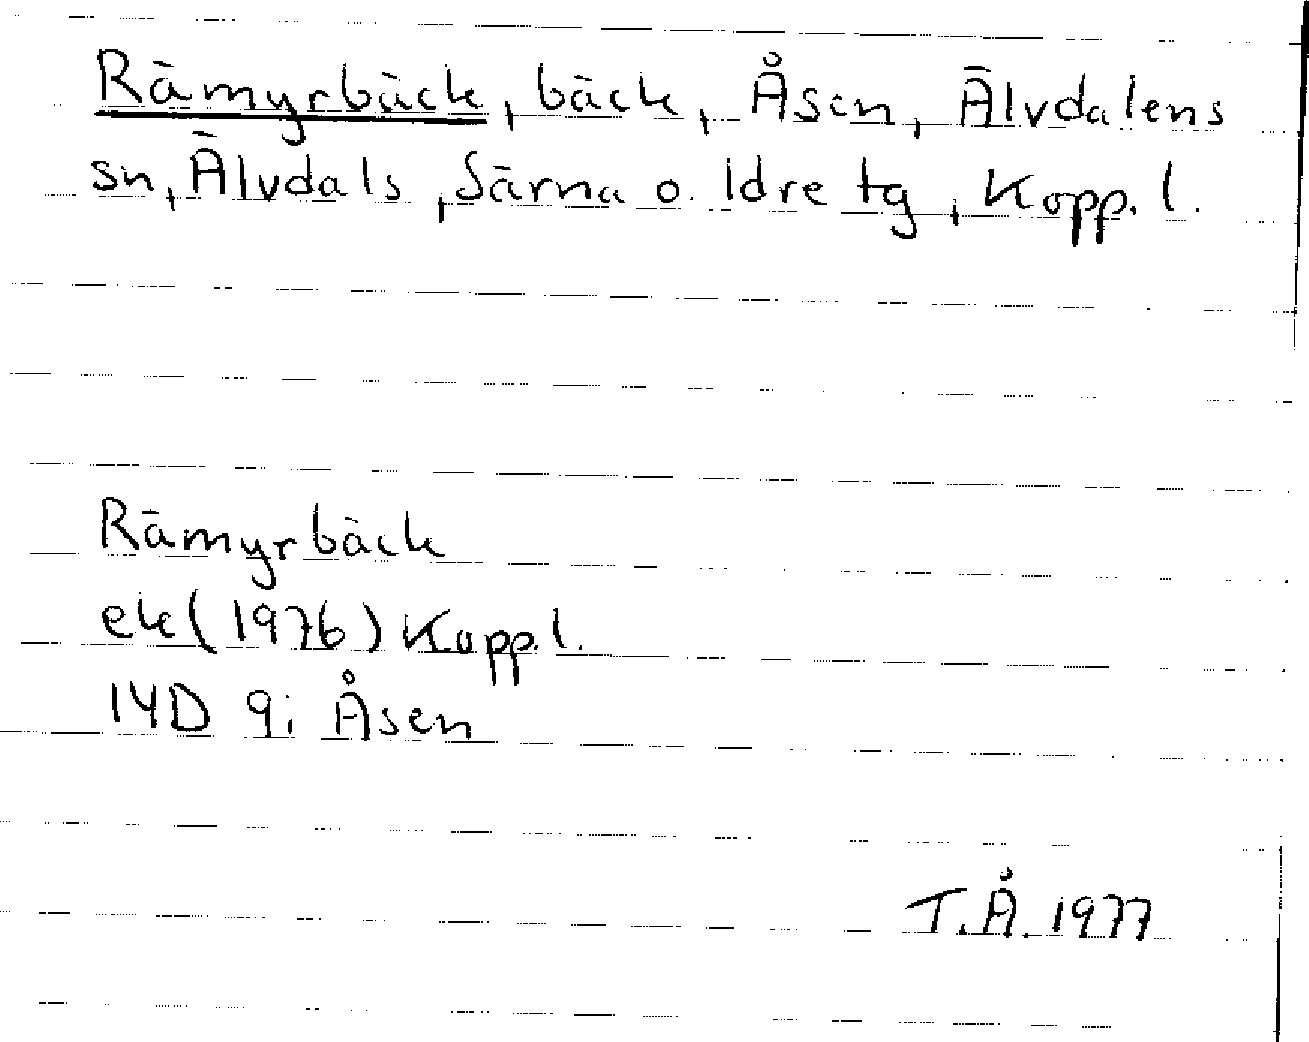 Rämyrbäck, bäck, Åsen, Älvdalens
sn, Älvdals, Särna o. Idre tg, Kopp. l.
Rämyrbäck
ek (1976) Kopp. l.
14D 9i Åsen
T.Å. 1977